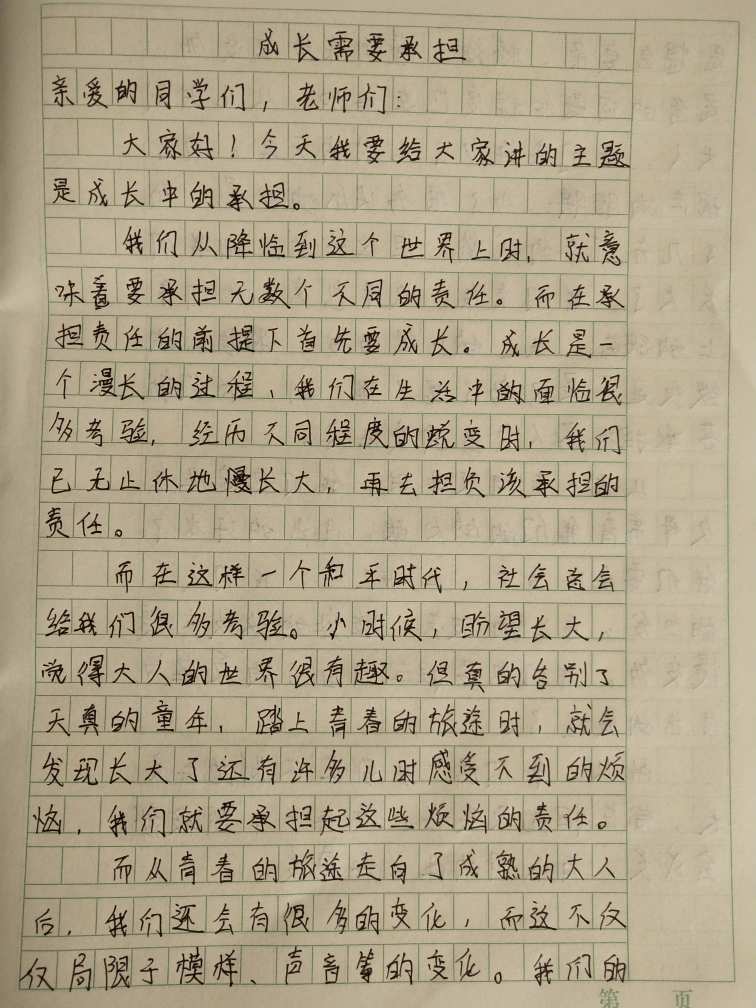 成长需要承担
亲爱的同学们，老师们：
大家好！今天我要给大家讲的主题
是成长中的承担。
我们从降临到这个世界上时，就意
味着要承担无数个不同的责任。而在承
担责任的前提下首先要成长。成长是一
个漫长的过程、我们在生活中的面临很
多考验，经历不同程度的蜕变时，我们
已无止休地慢长大，再去担负该承担的
责任。
而在这样一个和平时代，社会总会
给我们很多考验。小时候，盼望长大，
觉得大人的世界很有趣。但真的告别了
天真的童年，踏上青春的旅途时，就会
发现长大了还有许多儿时感受不到的烦
恼，我们就要承担起这些烦恼的责任。
而从青春的旅途走向了成熟的大人
后，我们还会有很多的变化，而这不仅
仅局限于模样、声音等的变化。我们的
第 页